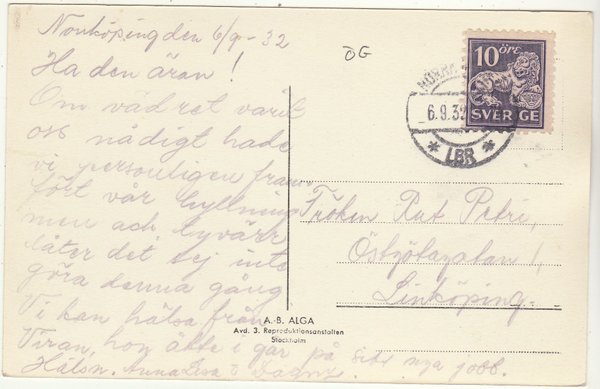 Norrköping den 6/9 - 32
Ha den äran!
Om vädret varit
oss nådigt hade
vi personligen fram-
fört vår hyllning
men ack tyvärr
låter det sej inte
göra denna gång
Vi kan hälsa från
Viran, hon åkte i går på sitt nya jobb.
Hälsn. Anna Lisa o
ÖG
10 ÖRE
SVERIGE
6.9.32
* LBR *
Fröken Rut Petri,
Östgötagatan 1,
Linköping.
A.-B. ALGA
Avd. 3. Reproduktionsanstalten
Stockholm